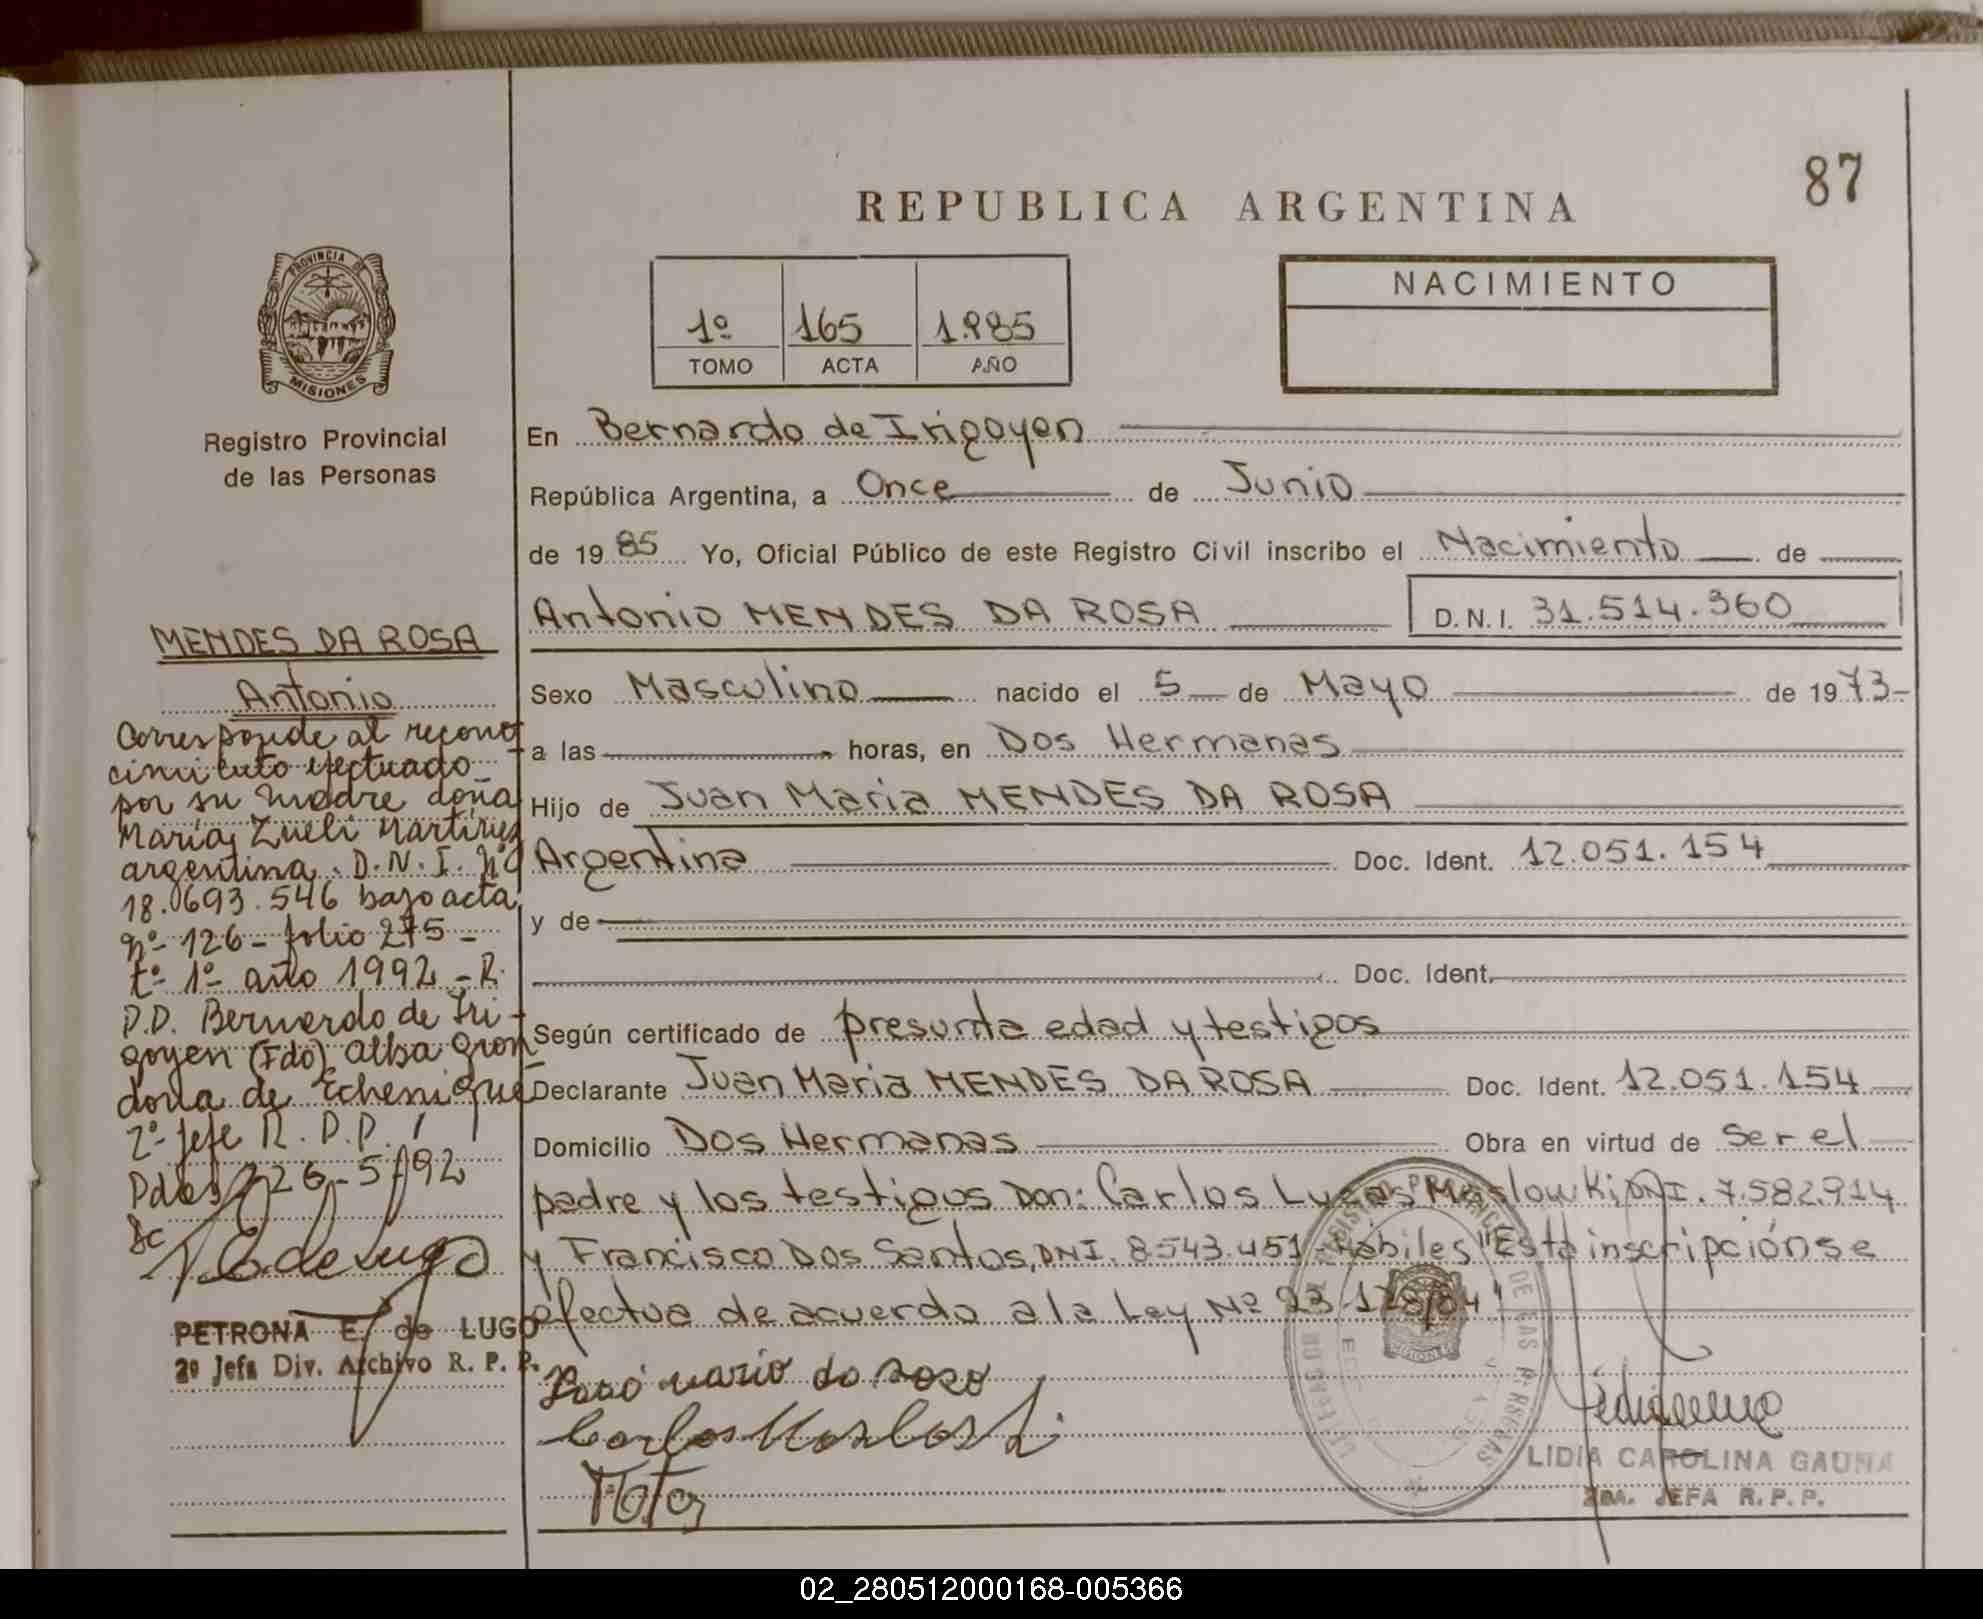 87
REPUBLICA ARGENTINA
PROVINCIA DE
MISIONES
Registro Provincial
de las Personas
1º 165 1.985
TOMO ACTA AÑO
NACIMIENTO
En Bernardo de Irigoyen
República Argentina, a Once de Junio
de 19 85 Yo, Oficial Público de este Registro Civil inscribo el Nacimiento de
Antonio MENDES DA ROSA D.N.I. 31.514.360
Sexo Masculino nacido el 5 de Mayo de 1973-
a las horas, en Dos Hermanas
Hijo de Juan Maria MENDES DA ROSA
Argentina Doc. Ident. 12.051.154
y de
Doc. Ident.
Según certificado de presunta edad y testigos
Declarante Juan Maria MENDES DA ROSA Doc. Ident. 12.051.154
Domicilio Dos Hermanas Obra en virtud de Ser el
padre y los testigos Don: Carlos Lucas Maslowki, DNI. 7.582.914
y Francisco Dos Santos, DNI. 8.543.451 Hábiles "Esta inscripción se
efectua de acuerdo a la Ley Nº 23.128/84"
LIDIA CAROLINA GAUNA
2DA. JEFA R.P.P.
MENDES DA ROSA
Antonio
Corresponde al recono
cimiento efectuado
por su madre doña
María Zueli Martinez
argentina. D.N.I. Nº
18.0693.546 bajo acta
nº 126 - folio 275 -
tº 1º año 1992 - R.
P.P. Bernardo de Iri-
goyen (Fdo) Alba Gron
dona de Echenique
2º Jefe R.P.P.
Pdas, 26-5-92
PETRONA E. de LUGO
2º Jefa Div. Archivo R. P. P.
02_280512000168-005366